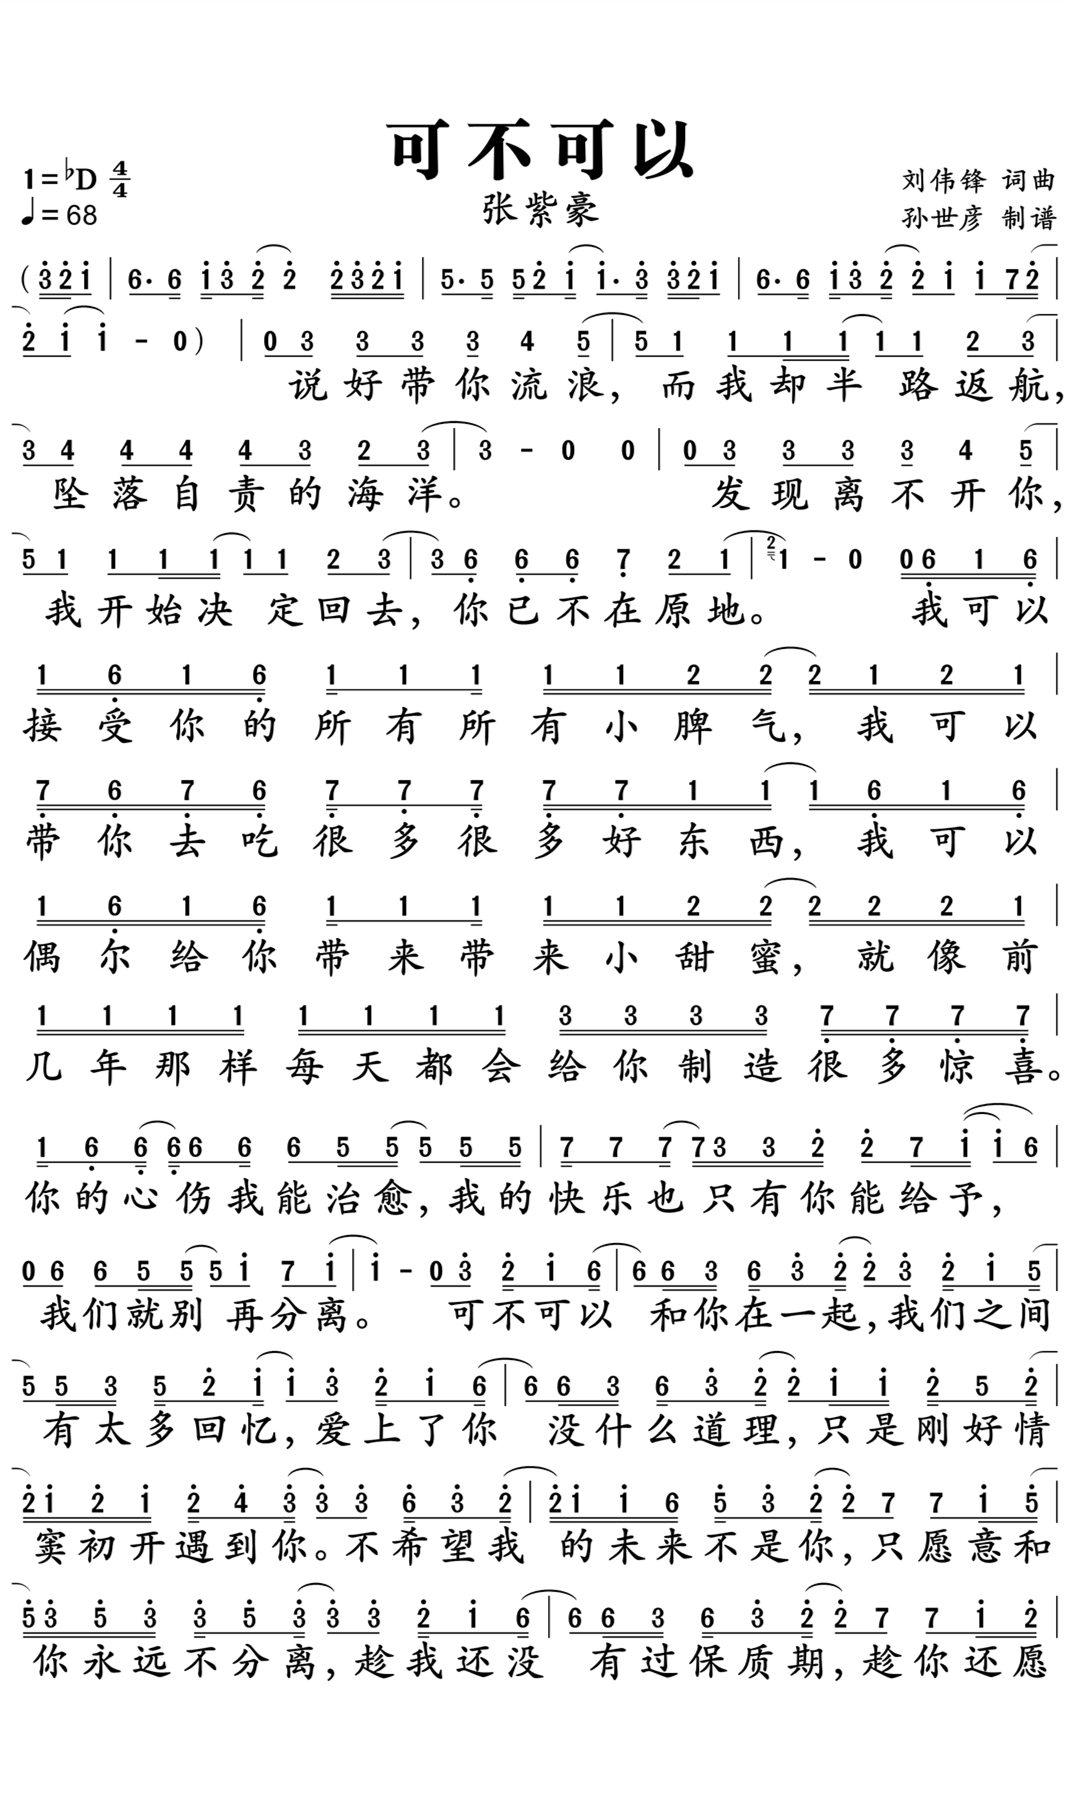 可不可以
1=♭D 4/4
刘伟锋 词曲
♩=68
张紫豪
孙世彦 制谱
(3̇2̇1̇ | 6· 6 1̇3̇ 2̇ 2̇ 2̇3̇2̇1̇ | 5· 5 52̇ 1̇ 1̇· 3̇ 3̇2̇1̇ | 6· 6 1̇3̇ 2̇ 2̇ 1̇ 1̇ 72̇ |
2̇ 1̇ 1̇ - 0) | 0 3 3 3 3 4 5 | 5 1 1 1 1 1 1 2 3 |
说好带你流浪，而我却半 路返航，
3 4 4 4 4 3 2 3 | 3 - 0 0 | 0 3 3 3 3 4 5 |
坠落自责的海洋。 发现离不开你，
5 1 1 1 1 1 1 2 3 | 3 6̣ 6̣ 6̣ 7̣ 2 1 | 2 1 - 0 0 6̣ 1 6̣ |
我开始决 定回去，你已不在原地。 我可以
1 6̣ 1 6̣ 1 1 1 1 1 2 2 2 1 2 1 |
接受你的所有所有小脾气，我可以
7̣ 6̣ 7̣ 6̣ 7̣ 7̣ 7̣ 7̣ 7̣ 1 1 1 6̣ 1 6̣ |
带你去吃很多很多好东西，我可以
1 6̣ 1 6̣ 1 1 1 1 1 2 2 2 2 2 1 |
偶尔给你带来带来小甜蜜，就像前
1 1 1 1 1 1 1 1 3 3 3 3 7̣ 7̣ 7̣ 7̣ |
几年那样每天都会给你制造很多惊喜。
1 6̣ 6̣ 6̣ 6 6 6 6 5 5 5 5 5 | 7 7 7 7 3 3 2̇ 2̇ 7 1̇ 1̇ 6 |
你的心伤我能治愈，我的快乐也只有你能给予，
0 6 6 5 5 5 1̇ 7 1̇ | 1̇ - 0 3̇ 2̇ 1̇ 6 | 6 6 3 6 3̇ 2̇ 2̇ 3̇ 2̇ 1̇ 5 |
我们就别 再分离。 可不可以 和你在一起，我们之间
5 5 3 5 2̇ 1̇ 1̇ 3̇ 2̇ 1̇ 6 | 6 6 3 6 3̇ 2̇ 2̇ 1̇ 1̇ 2̇ 5 2̇ |
有太多回忆，爱上了你 没什么道理，只是刚好情
2̇ 1̇ 2̇ 1̇ 2̇ 4̇ 3̇ 3̇ 3̇ 6̇ 3̇ 2̇ | 2̇ 1̇ 1̇ 6 5̇ 3̇ 2̇ 2̇ 7 7 1̇ 5̇ |
窦初开遇到你。不希望我 的未来不是你，只愿意和
5̇ 3̇ 5̇ 3̇ 3̇ 5̇ 3̇ 3̇ 3̇ 2̇ 1̇ 6 | 6 6 3 6 3̇ 2̇ 2̇ 7 7 1̇ 2̇ |
你永远不分离，趁我还没 有过保质期，趁你还愿